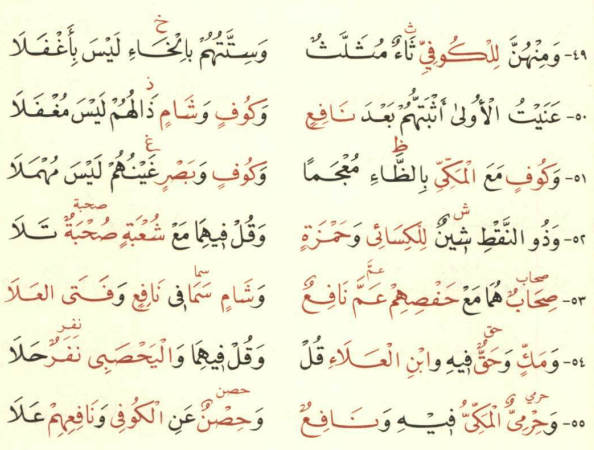 ٤٩- وَمِنْهُنَّ لِلْكُوفِيِّ ثَاءٌ مُثَلَّثٌ وَسِتَّتُهُمْ بِالْخَاءِ لَيْسَ بِأَغْفَلَا
٥٠- عَنَيْتُ الْأُولَى أَثْبَتُّهُمْ بَعْدَ نَافِعٍ وَكُوفٍ وَشَامٍ ذَالُهُمْ لَيْسَ مُغْفَلَا
٥١- وَكُوفٍ مَعَ الْمَكِّيِّ بِالظَّاءِ مُعْجَمًا وَكُوفٍ وَبَصْرٍ غَيْنُهُمْ لَيْسَ مُهْمَلَا
٥٢- وَذُو النَّقْطِ شِينٌ لِلْكِسَائِى وَحَمْزَةٍ وَقُلْ فِيهِمَا مَعْ شُعْبَةٍ صُحْبَةٌ تَلَا
٥٣- صِحَابٌ هُمَا مَعْ حَفْصِهِمْ عَمَّ نَافِعٌ وَشَامٍ سَمَا فِى نَافِعٍ وَفَتَى الْعَلَا
٥٤- وَمَكٍّ وَحَقٌّ فِيهِ وَابْنِ الْعَلَاءِ قُلْ وَقُلْ فِيهِمَا وَالْيَحْصَبِى نَفَرٌ حَلَا
٥٥- وَحِرْمِيٌّ الْمَكِّيُّ فِيهِ وَنَافِعٌ وَحِصْنٌ عَنِ الْكُوفِى وَنَافِعِهِمْ عَلَا